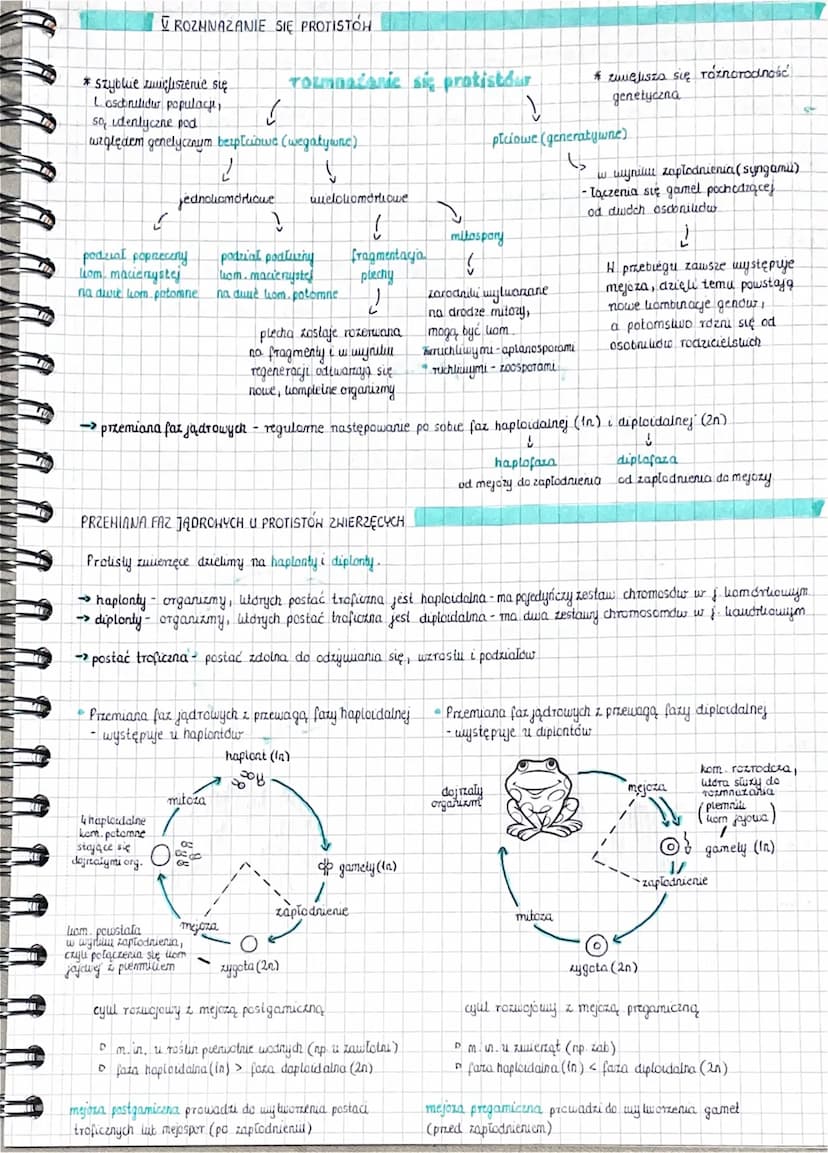 V ROZMNAŻANIE SIĘ PROTISTÓW
rozmnażanie się protistów
* szybkie zwiększenie się
l. osobników populacji,
są identyczne pod
względem genetycznym
* zwiększa się różnorodność
genetyczna
bezpłciowe (wegatywne)
płciowe (generatywne)
jednokomórkowe
wielokomórkowe
w wyniku zapłodnienia (syngamii)
- łączenia się gamet pochodzącej
od dwóch osobników
podział poprzeczny
kom. macierzystej
na dwie kom. potomne
podział podłużny
kom. macierzystej
na dwie kom. potomne
fragmentacja
plechy
mitospory
plecha zostaje rozerwana
na fragmenty i w wyniku
regeneracji odtwarzają się
nowe, kompletne organizmy
zarodniki wytwarzane
na drodze mitozy,
mogą być kom.
* nieruchliwymi - aplanosporami
* ruchliwymi - zoosporami
W przebiegu zawsze występuje
mejoza, dzięki temu powstają
nowe kombinacje genów,
a potomstwo różni się od
osobników rodzicielskich
→ przemiana faz jądrowych - regularne następowanie po sobie faz haploidalnej (1n) i diploidalnej (2n)
haplofaza
od mejozy do zapłodnienia
diplofaza
od zapłodnienia do mejozy
PRZEMIANA FAZ JĄDROWYCH U PROTISTÓW ZWIERZĘCYCH
Protisty zwierzęce dzielimy na haplonty i diplonty.
→ haplonty - organizmy, których postać troficzna jest haploidalna - ma pojedyńczy zestaw chromosów w j. komórkowym
→ diplonty - organizmy, których postać troficzna jest diploidalna - ma dwa zestawy chromosomów w j. komórkowym
→ postać troficzna - postać zdolna do odżywiania się, wzrostu i podziałów
• Przemiana faz jądrowych z przewagą fazy haploidalnej
- występuje u haplontów
haplont (1n)
mitoza
4 haploidalne
kom. potomne
stające się
dojrzałymi org.
gamety (1n)
zapłodnienie
mejoza
zygota (2n)
kom. powstała
w wyniku zapłodnienia,
czyli połączenia się kom
jajowej z plemnikiem
cykl rozwojowy z mejozą postgamiczną
▫ m.in. u roślin pierwotnie wodnych (np. u zawłotni)
▫ faza haploidalna (1n) > faza daploidalna (2n)
mejoza postgamiczna prowadzi do wytworzenia postaci
troficznych lub mejospor (po zapłodnieniu)
• Przemiana faz jądrowych z przewagą fazy diploidalnej
- występuje u diplontów
dojrzały
organizm
mejoza
kom. rozrodcza,
która służy do
rozmnażania
(plemnik
kom jajowa)
gamety (1n)
zapłodnienie
mitoza
zygota (2n)
cykl rozwojowy z mejozą pregamiczną
▫ m.in. u zwierząt (np. żab)
▫ faza haploidalna (1n) < faza diploidalna (2n)
mejoza pregamiczna prowadzi do wytworzenia gamet
(przed zapłodnieniem)